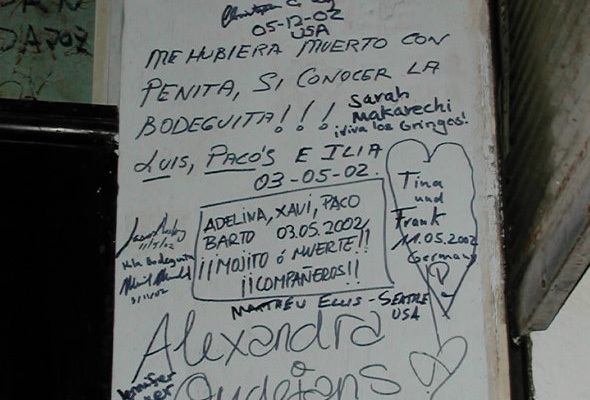 05-12-02
USA
ME HUBIERA MUERTO CON
PENITA, SI CONOCER LA
BODEGUITA!!!
Sarah
Makarechi
¡Viva los Gringos!
LUIS, PACO'S E ILIA
03-05-02.
ADELINA, XAVI, PACO
BARTO 03.05.2002
¡¡MOJITO ó MUERTE!!
¡¡COMPAÑEROS!!
Tina
und
Frank
11.05.2002
Germany
11/5/02
Bodeguita
5/11/02
MATTHEW ELLIS - SEATTLE
USA
Alexandra
Oudejans
Jennifer